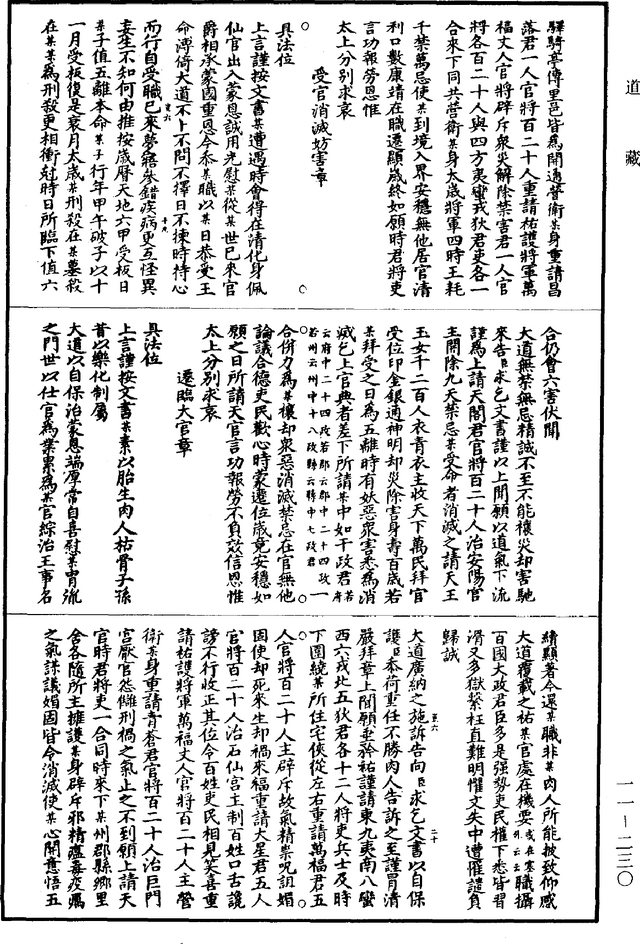 驛騎亭傳里邑皆為開通營衛某身重請昌
落君一人官將百二十人重請祐護將軍萬
福丈人官將辟斥衆災解除禁害君一人官
將各百二十人與四方夷蠻戎狄君吏各一
合來下同共營衛某身太歲將軍四時王耗
千禁萬忌使某到境入界安穩無他居官清
利口數康靖在職遷顯歲終如願時君將吏
言功報勞恩惟
太上分別求哀
受官消滅妨害章
具法位
上言謹按文書某遭遇時會得在清化身佩
仙官出入蒙恩誠用光慰某從某世已來官
爵相承蒙國重恩今忝某職以某日恭受王
命溥倚大道不卜不問不擇日不揀時持心
而行自受職已來夢寤參錯疾病更互怪異
妄生不知何由推按歲曆天地六甲受板日
某子值五離本命某子行年甲午破子以十
一月受板復是衰月太歲某刑殺在某墓殺
在某某為刑殺更相衝尅時日所臨下值六
合仍會六害伏聞
大道無禁無忌精誠不至不能禳災却害馳
來告臣求乞文書謹以上聞願以道氣下流
謹為上請天閣君官將百二十人治安陽宮
主開除九天禁忌某受命者消滅之請天王
玉女千二百人衣青衣主收天下萬民拜官
受位印金銀通神明却災除害身壽百歲若
某拜受之日為五離時有妖惡衆害悉為消
滅乞上官典者差下所請某中如干政君若府
云府中二十四政若郡云郡中二十四政一
若州云州中十八政縣云縣中七政君一
合併力為某禳却衆惡消滅禁忌在官無他
論議合德吏民歡心時蒙遷位歲竟安穩如
願之日所請天官言功報勞不負效信恩惟
太上分別求哀
遷臨大官章
具法位
上言謹按文書某素以胎生肉人枯骨子孫
昔以樂化制屬
大道以自保治蒙恩端厚常自喜慰某胄流
之門世以仕官為業累為某官綜治王事名
績顯著今還某職非某肉人所能披致仰感
大道覆載之祐某官處在機要或在塞外云云職攝
百國大政君臣多是強勢吏民權下悉皆習
滑又多獄繫枉直難明懼文失中遭罹譴負
歸誠
大道廣納之施訴告向臣求乞文書以自保
護臣忝荷重任不勝肉人告訴之至謹冒清
嚴拜章上聞願垂幹祐謹請東九夷南八蠻
西六戎北五狄君各十二人將吏兵士及時
下圍繞某所住宅俠從左右重請萬福君五
人官將百二十人主辟斥故氣精祟呪詛媚
固使却死來生却禍來福重請大星君五人
官將百二十人治石仙宮主制百姓口舌讒
謗不行收正其位令百姓吏民相見笑喜重
請祐護將軍萬福丈人官將百二十人主營
衛某身重請青蒼君官將百二十人治巨門
宮厭官怨讎刑禍之氣止之不到願上請天
官時君將吏一合同時來下某州郡縣鄉里
舍各隨所主擁護某身辟斥邪精瘟毒疫癘
之氣謀議婚固皆令消滅使某心開意悟五
道藏
一一-二三〇